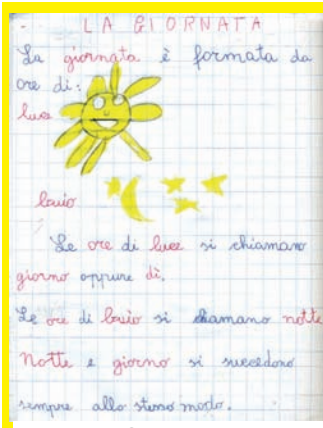 LA GIORNATA
La giornata è formata da
ore di:
luce
buio
Le ore di luce si chiamano
giorno oppure dì.
Le ore di buio si chiamano notte
Notte e giorno si succedono
sempre allo stesso modo.